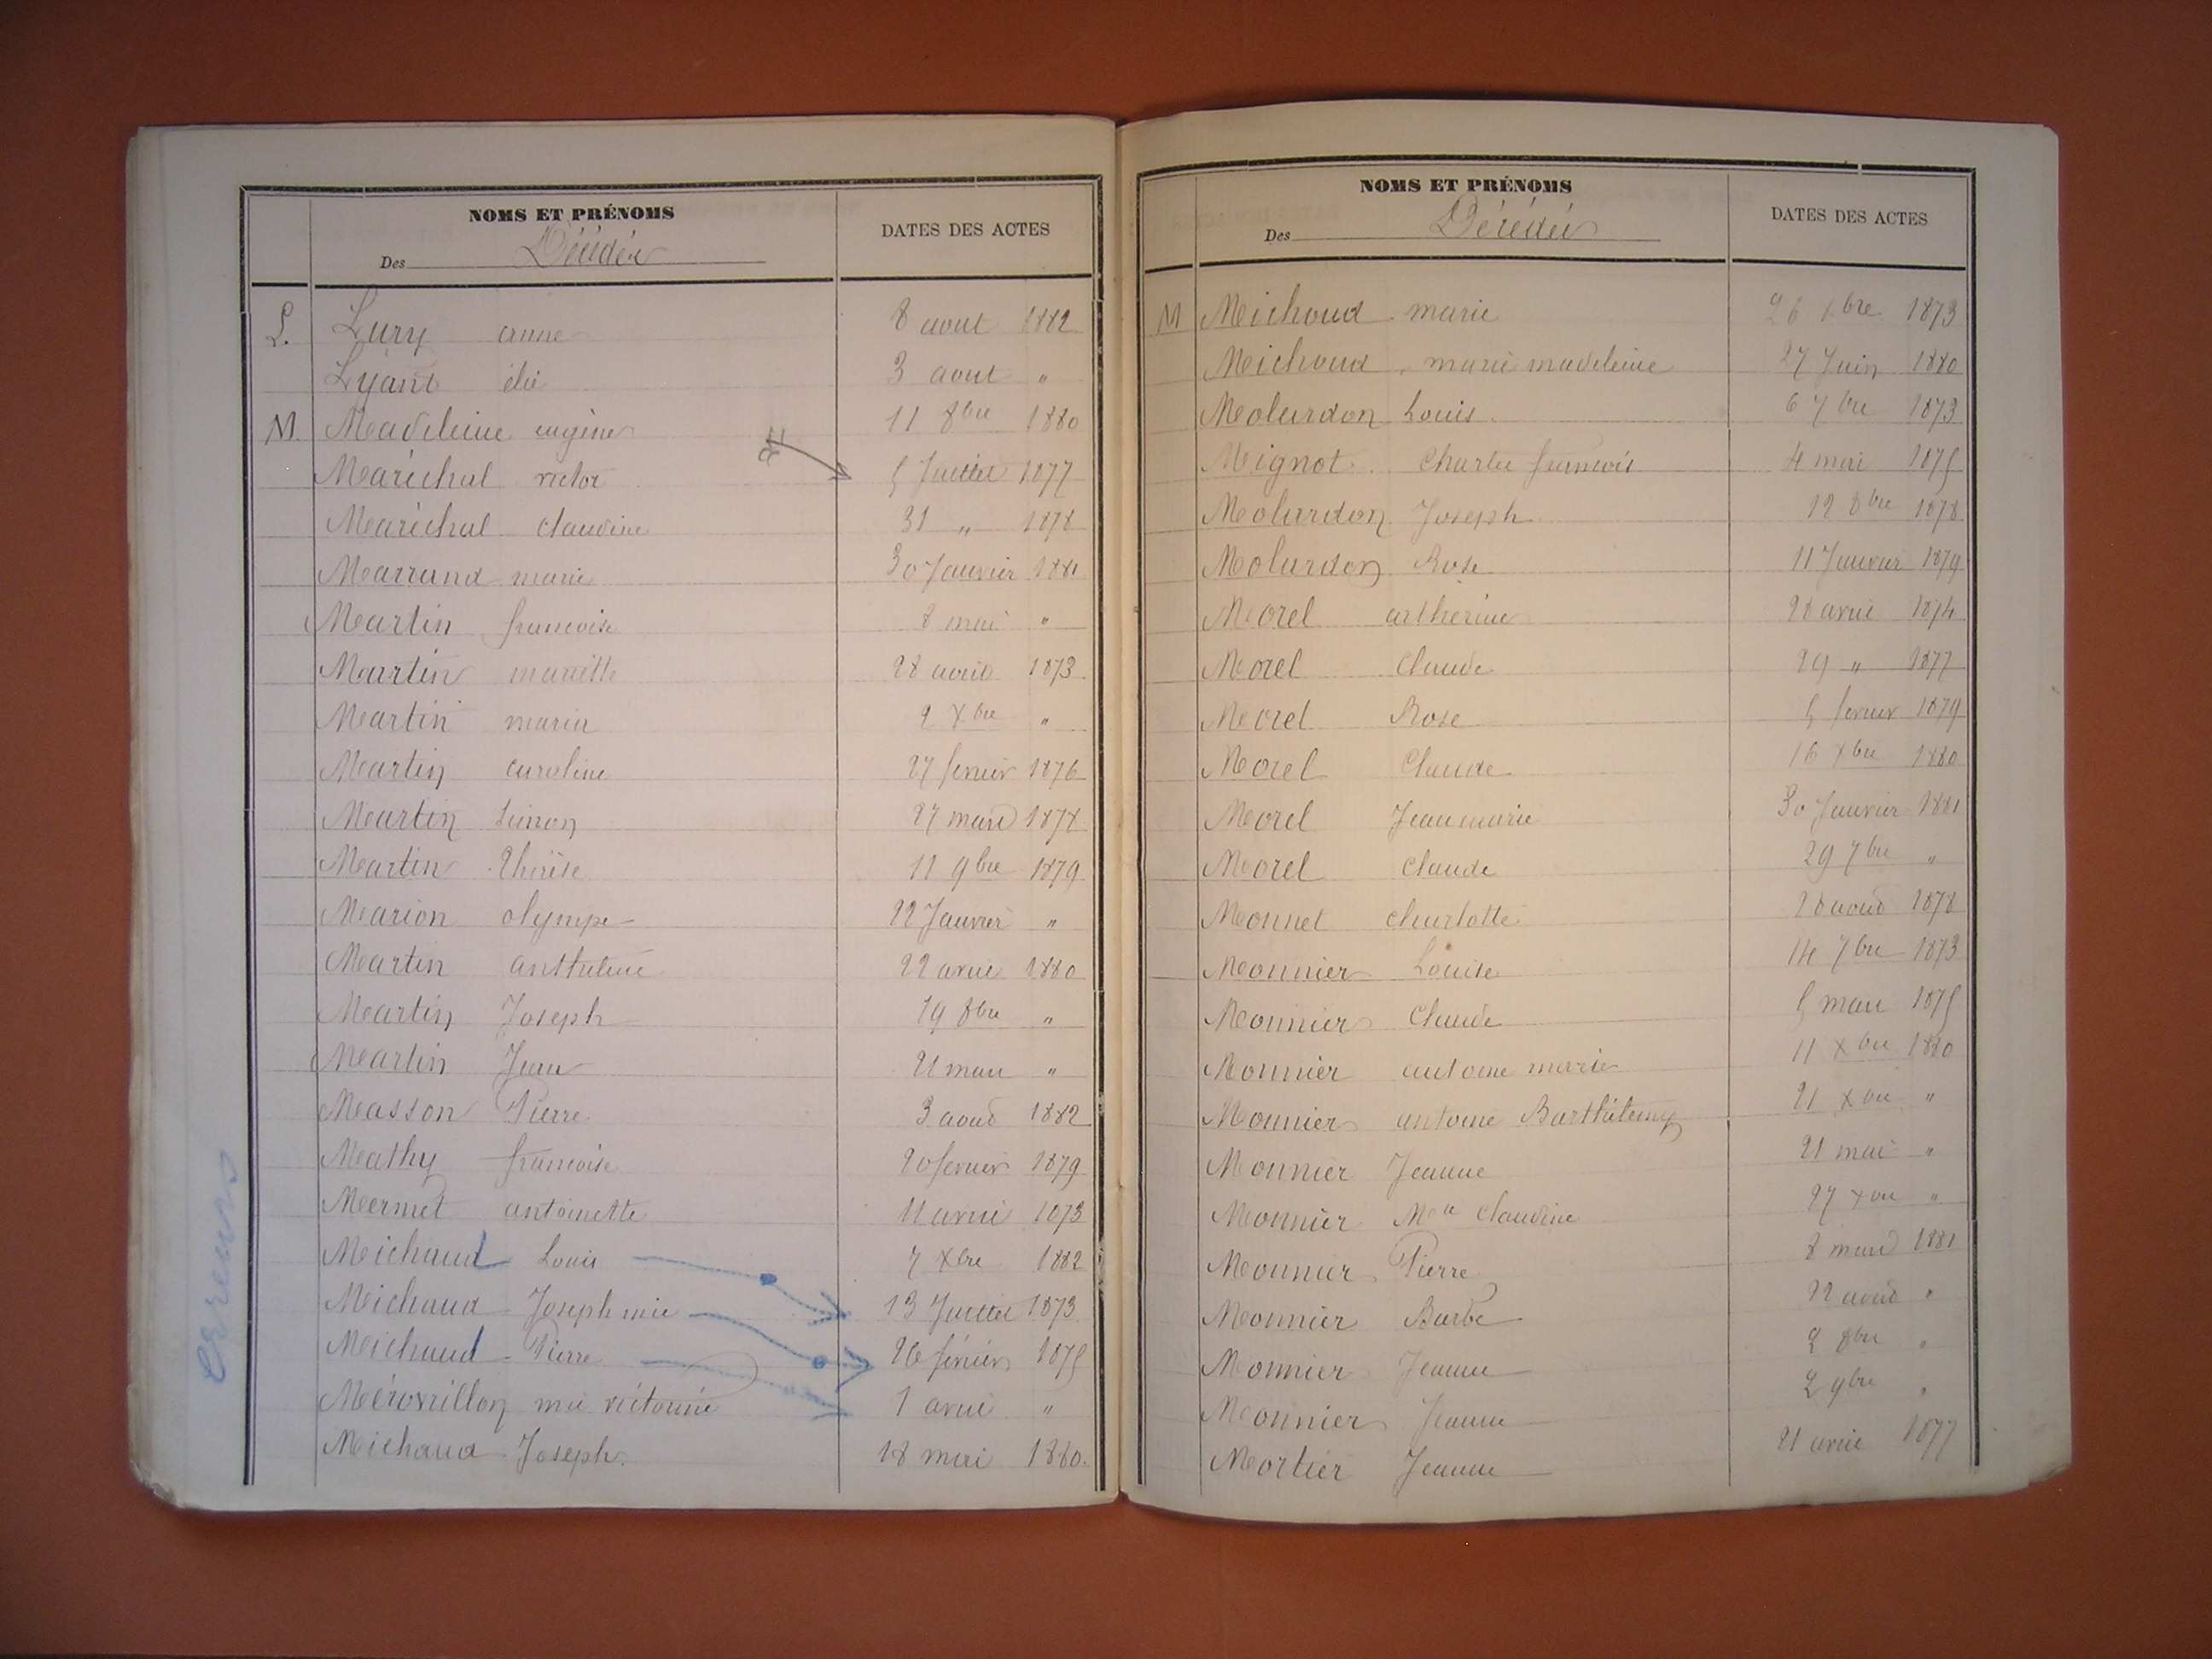 NOMS ET PRÉNOMS
DATES DES ACTES
Des Décédés
L. Lury anne 8 aout 1882
Lyant élie 3 aout "
M. Madeleine eugène 11 8bre 1880
Maréchal victor 5 Juillet 1877
Maréchal claudine 31 " 1878
Marrand marie 30 Janvier 1881
Martin francoise 8 mai "
Martin mariette 28 avril 1873
Martin maria 2 Xbre "
Martin caroline 27 fevrier 1876
Martin Simon 27 mars 1878
Martin Thérèse 11 9bre 1879
Marion olympe 22 Janvier "
Martin anthelme 22 avril 1880
Martin Joseph 19 8bre "
Martin Jean 21 mars "
Masson Pierre 3 aout 1882
Mathy francoise 20 fevrier 1879
Mermet antoinette 11 avril 1873
Michaud Louis 7 Xbre 1882
Michaud Joseph mie 13 Juillet 1873
Michaud Pierre 26 février 1875
mie victorine 1 avril "
Michaud Joseph 18 mai 1880.
Erreurs
NOMS ET PRÉNOMS
DATES DES ACTES
Des Décédés
M Michoud marie 26 Xbre 1873
Michoud marie madeleine 27 Juin 1880
Molardon Louis 6 7bre 1873
Mignot Charles francois 4 mai 1875
Molardon Joseph 12 8bre 1878
Molardon Rose 11 Janvier 1879
Morel catherine 28 avril 1874
Morel Claude 29 " 1877
Morel Rose 5 fevrier 1879
Morel Claude 16 Xbre 1880
Morel Jean marie 30 Janvier 1881
Morel Claude 29 7bre "
Monnet Charlotte 28 aout 1878
Monnier Louise 14 7bre 1873
Monnier Claude 5 mars 1875
Monnier antoine marie 11 Xbre 1880
Monnier antoine Barthélemy 21 Xbre "
Monnier Jeanne 21 mai "
Monnier Mie Claudine 27 Xbre "
Monnier Pierre 8 mars 1881
Monnier Barbe 22 aout "
Monnier Jeanne 2 8bre "
Monnier Jeanne 2 9bre "
Mortier Jeanne 21 avril 1877